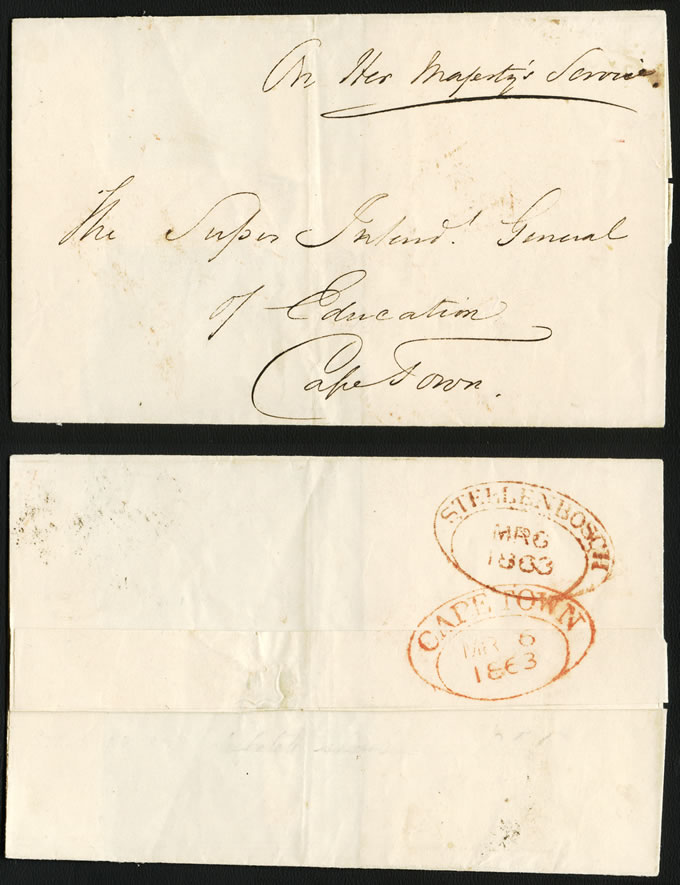 On Her Majesty's Service.
The Super Intend.t General
of Education
Cape Town.
STELLENBOSCH
MR 6
1863
CAPE TOWN
MR 6
1863